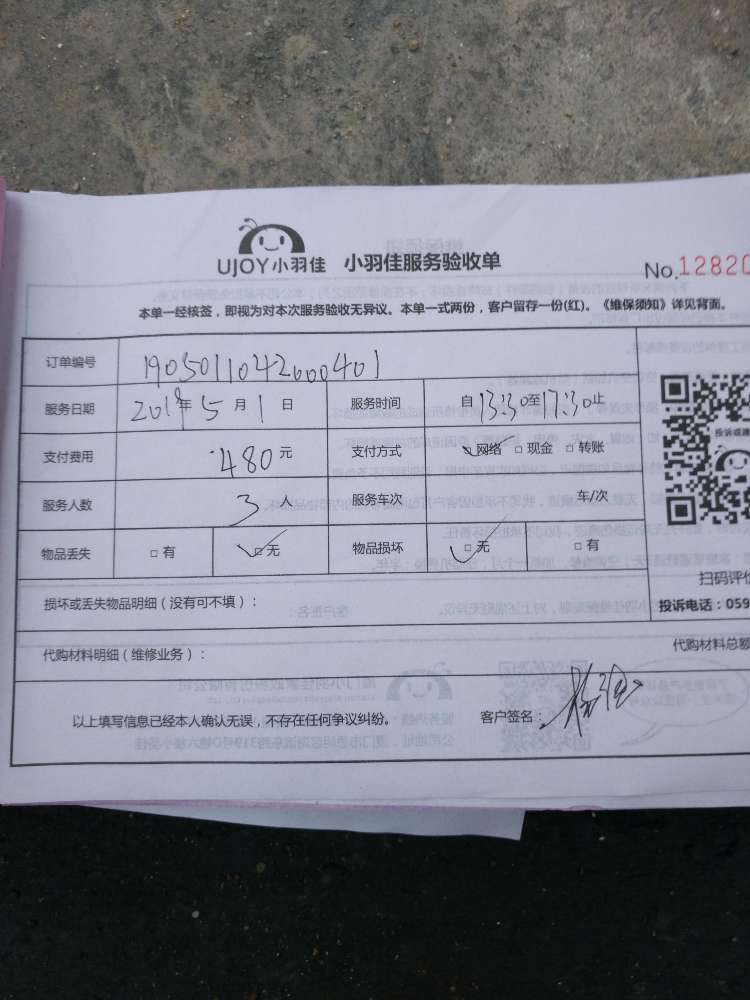 UJOY小羽佳 小羽佳服务验收单
No.12820
本单一经核签，即视为对本次服务验收无异议。本单一式两份，客户留存一份(红)。《维保须知》详见背面。
订单编号 1905011042000401
服务日期 2019年5月1日 服务时间 自13:30至17:30止
支付费用 480元 支付方式 网络 □现金 □转账
服务人数 3人 服务车次 车/次
物品丢失 □有 ✓□无 物品损坏 ✓□无 □有
扫码评价
损坏或丢失物品明细（没有可不填）：
投诉电话：059
代购材料明细（维修业务）：
代购材料总额
以上填写信息已经本人确认无误，不存在任何争议纠纷。 客户签名：